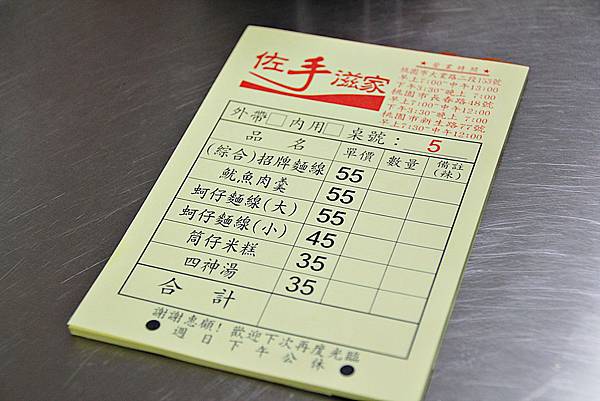 佐手滋家
★營業時間★
桃園市大業路二段153號
早上7:00~中午13:00
下午3:30~晚上 7:00
桃園市長春路48號
早上7:00~中午12:00
下午3:30~晚上 7:00
桃園市新生路77號
早上7:30~中午12:00
外帶□內用□桌號: 5
品 名 單價 數量 備註(辣)
(綜合)招牌麵線 55
魷魚肉羹 55
蚵仔麵線(大) 55
蚵仔麵線(小) 45
筒仔米糕 35
四神湯 35
合 計
謝謝惠顧! 歡迎下次再度光臨
週日下午公休